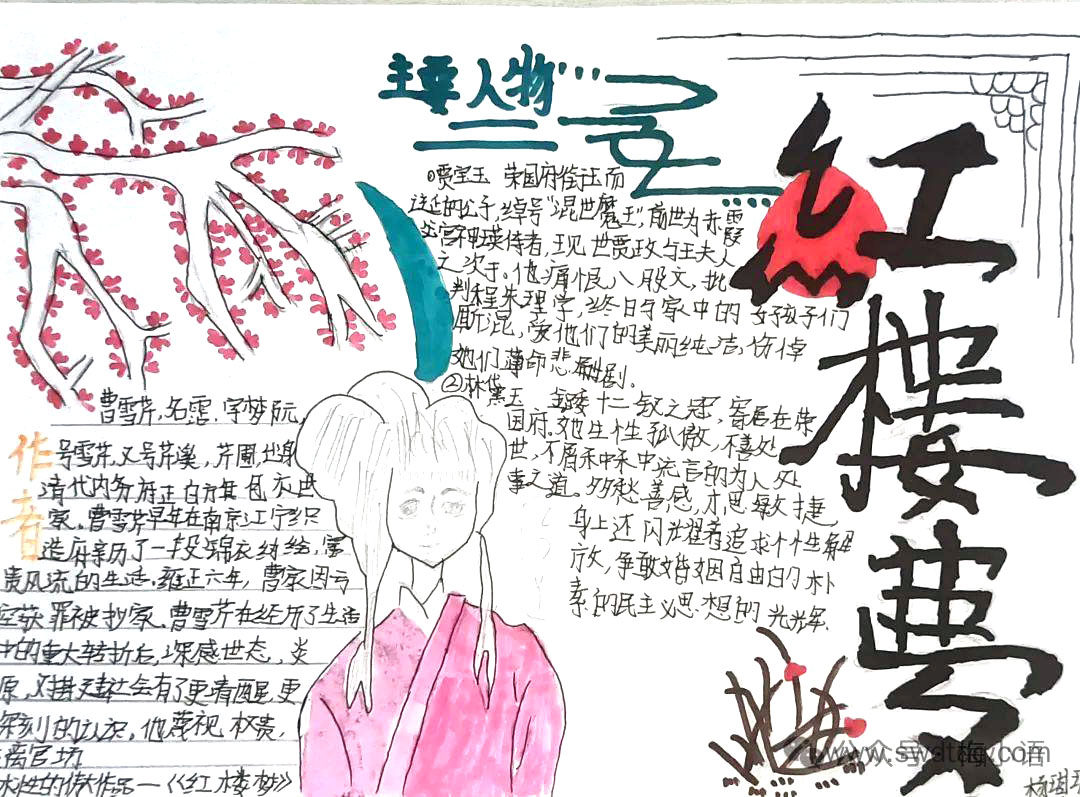 红楼梦
主要人物
①贾宝玉 荣国府衔玉而
的公子,绰号"混世魔王",前世为赤霞
宫神瑛侍者,现世贾政与王夫人
之次子。他痛恨八股文,批
判程朱理学,终日与家中的女孩子们
厮混,爱他们的美丽纯洁,伤悼
她们薄命悲剧。
②林黛玉 金陵十二钗之冠,寄居在荣
国府。她生性孤傲,不喜处
世,不屑流言的为人处
事之道。多愁善感,才思敏捷,
身上还闪耀着追求个性解
放,争取婚姻自由的朴
素的民主义思想的光辉.
作者
曹雪芹,名霑,字梦阮,
号雪芹,又号芹溪,芹圃,出身
清代内务府正白旗包衣世
家,曹雪芹早年在南京江宁织
造府亲历了一段锦衣纨绔,富
贵风流的生活。雍正六年,曹家因亏
空获罪被抄家.曹雪芹在经历了生活
中的重大转折后,深感世态,炎
,对封建社会有了更清醒,更
深刻的认识,他蔑视权贵,
离官场
性的伟大作品—《红楼梦》
www.swdtmy.com
杨